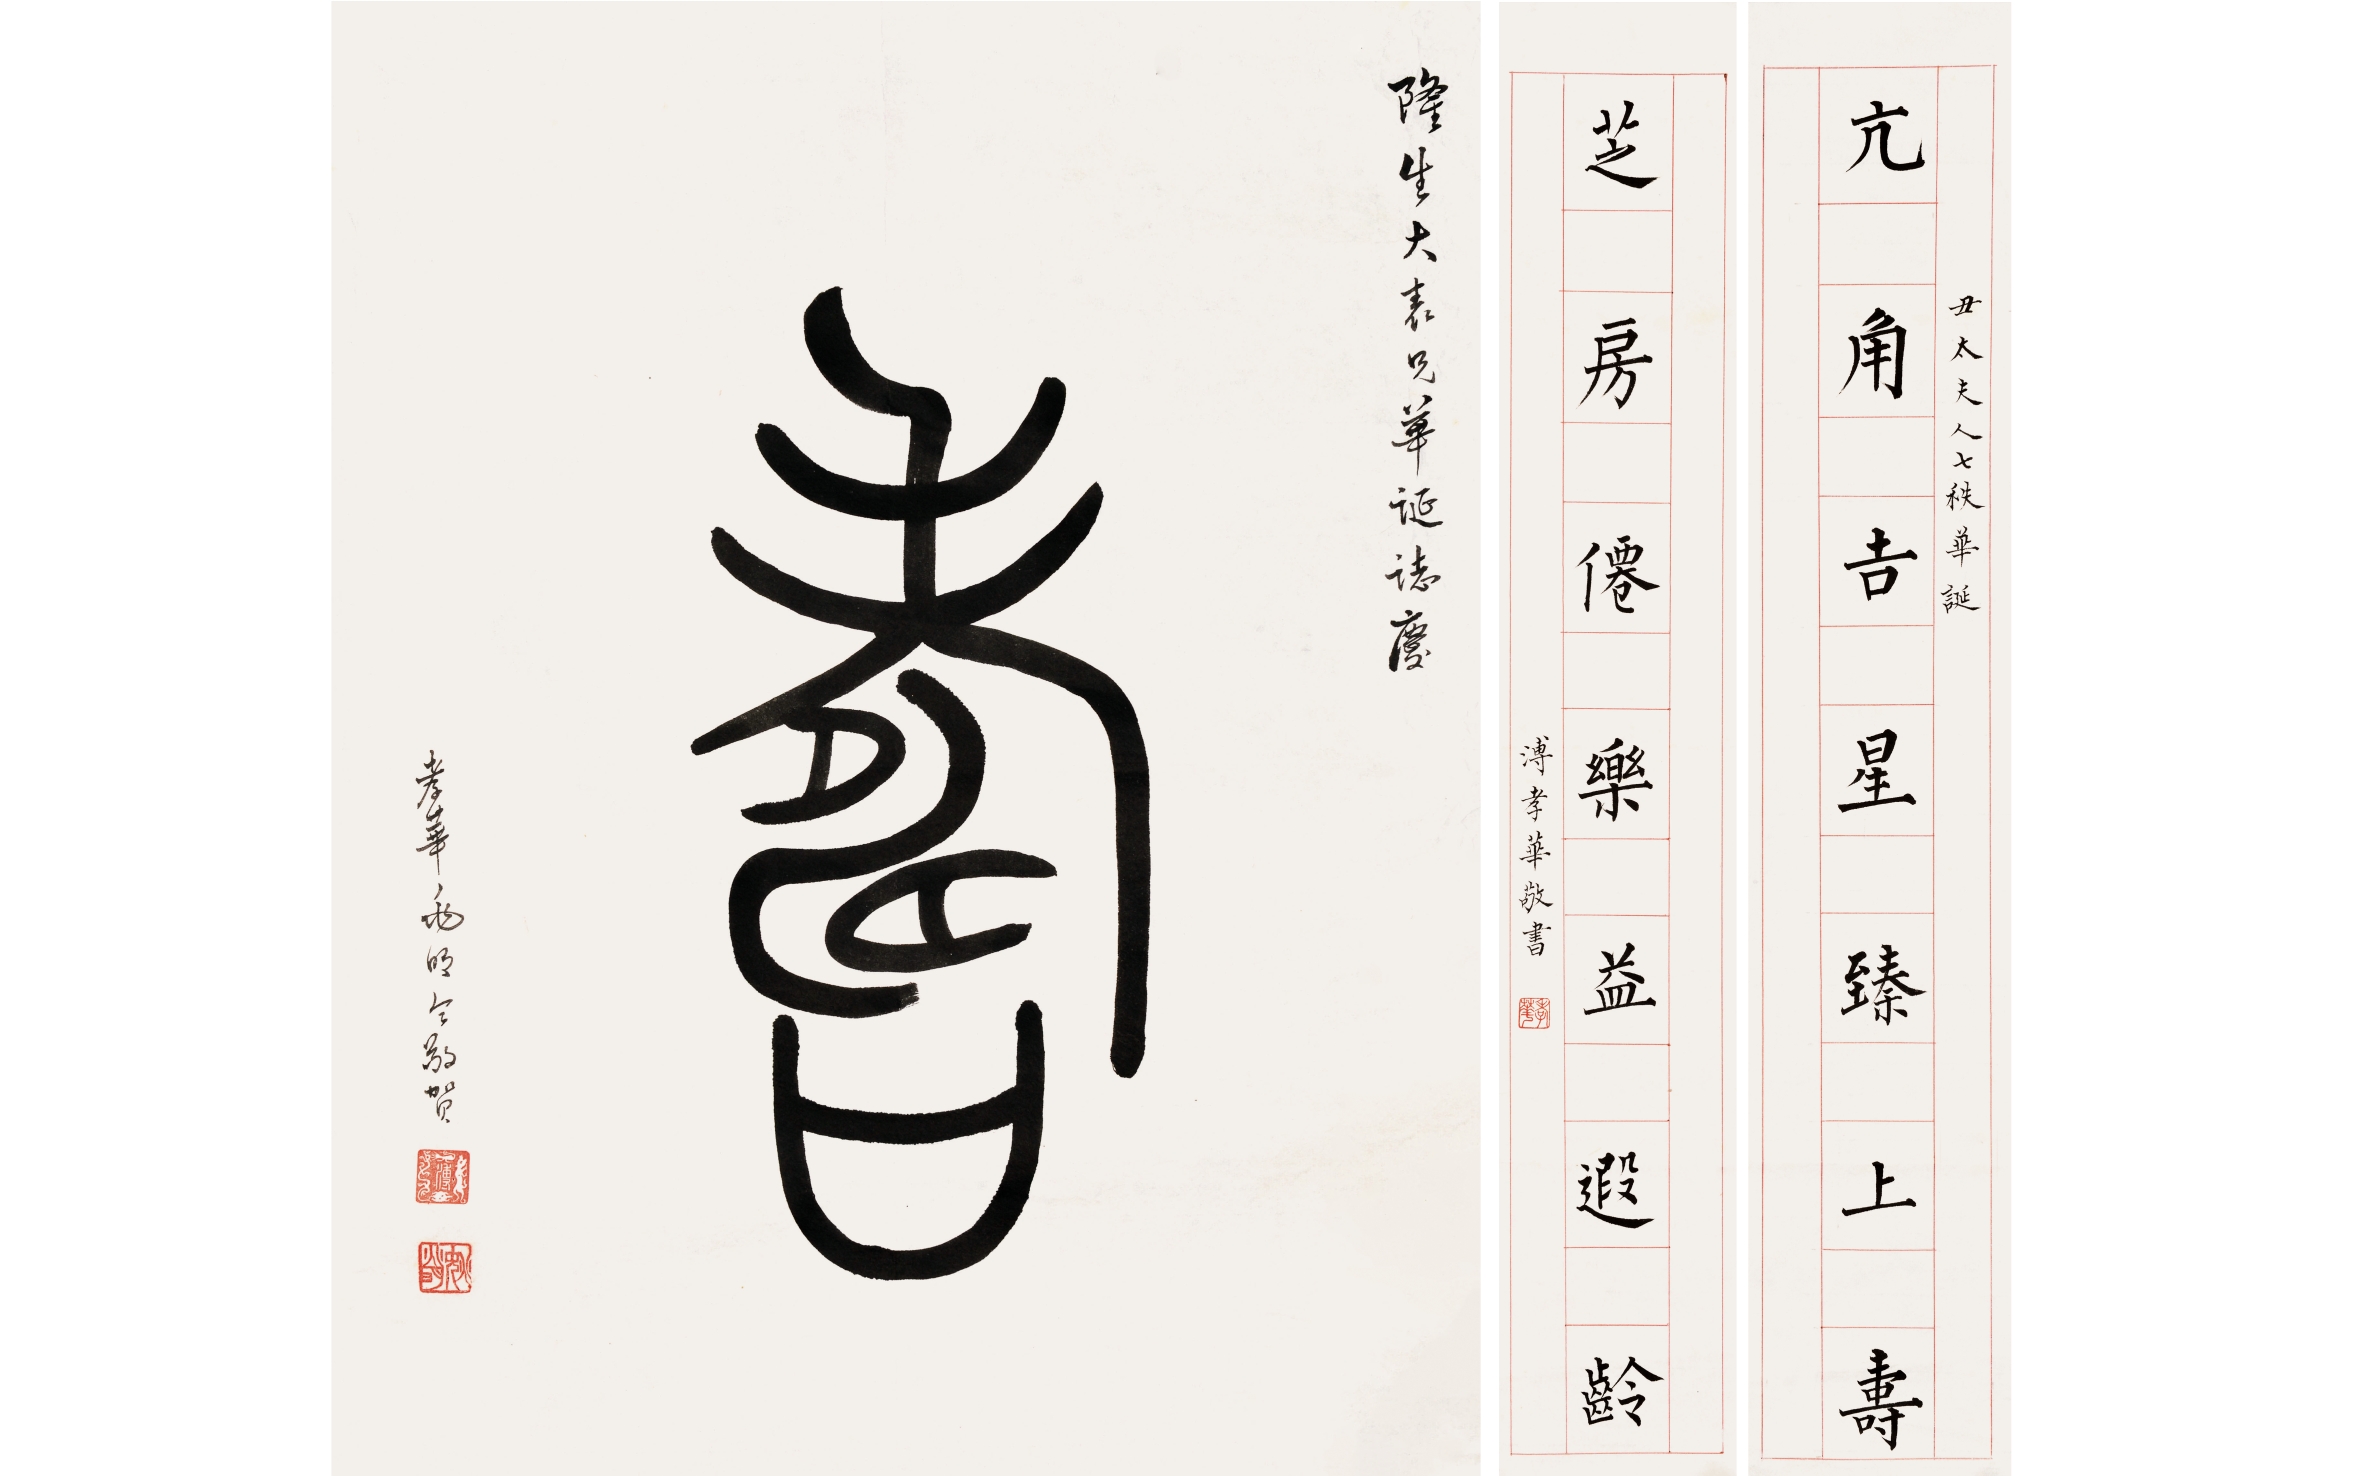 丑太夫人七秩華誕
亢角吉星臻上壽
芝房僊樂益遐齡
溥孝華敬書
孝華
隆生大表兄華誕誌慶
壽
孝華 明 敬賀